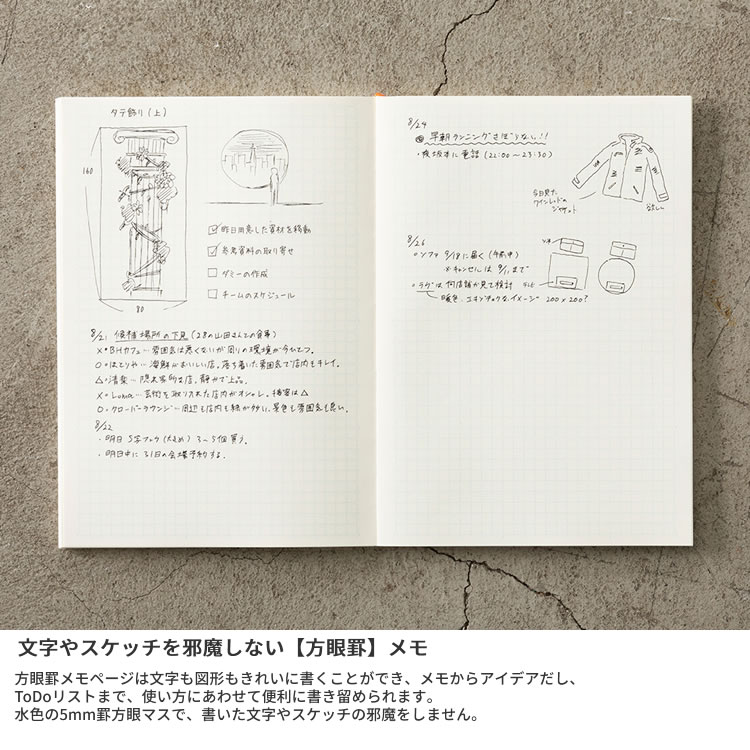 タテ飾り(上)
160
80
☑ 昨日用意した資材を移動
☑ 参考資料の取り寄せ
☐ ダミーの作成
☐ チームのスケジュール
8/21 候補場所の下見 (28の山田さんとの食事)
×・BHカフェ…雰囲気は悪くないが周りの環境が今ひとつ。
○・はとりや…海鮮がおいしい店。落ち着いた雰囲気で店内もキレイ。
△・清楽…隠れ家的な店。静かで上品。
×・Loma…芸術を取り入れた店内がオシャレ。接客は△
○・クローバーラウンジ…周辺も店内も緑が多い。景色も雰囲気も良い。
8/22
・明日 S字フック(大きめ) 3〜5個買う。
・明日中に31日の会場予約する。
8/24
早朝ランニングさぼらない!!
・長坂サンに電話 (22:00〜23:30)
今日見た
ワインレッドの
ジャケット
欲しい
8/26
○ソファ 9/18に届く (午前中)
※キャンセルは 9/1まで
○ラグは何店舗か見て検討
暖色 エキゾチックなイメージ 200×200?
ソファ
テレビ
文字やスケッチを邪魔しない【方眼罫】メモ
方眼罫メモページは文字も図形もきれいに書くことができ、メモからアイデアだし、
ToDoリストまで、使い方にあわせて便利に書き留められます。
水色の5mm罫方眼マスで、書いた文字やスケッチの邪魔をしません。